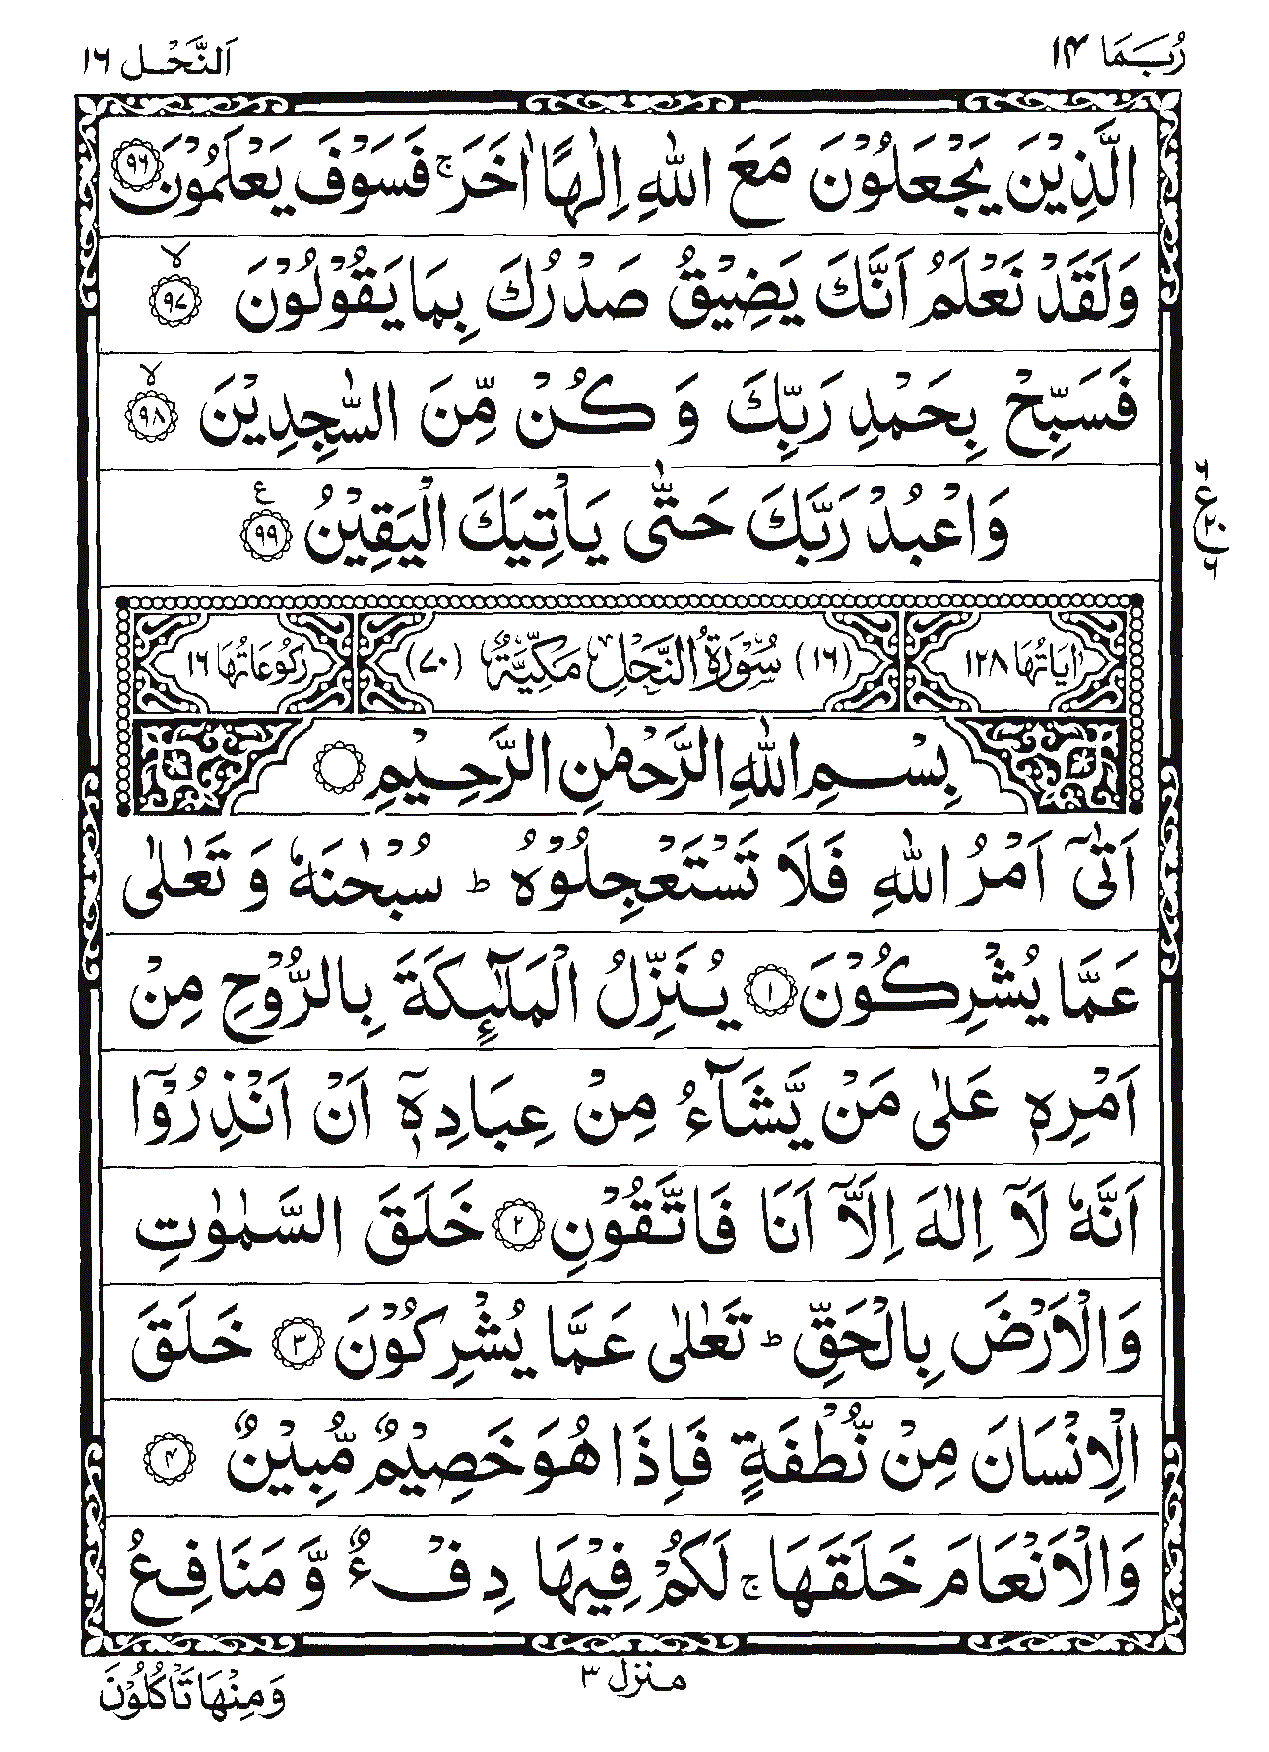 رُبَمَا ۱۴
اَلنَّحۡل ۱۶
الَّذِيۡنَ يَجۡعَلُوۡنَ مَعَ اللّٰهِ اِلٰهًا اٰخَرَ‌ ۚ فَسَوۡفَ يَعۡلَمُوۡنَ ﴿۹۶﴾
وَلَقَدۡ نَعۡلَمُ اَنَّكَ يَضِيۡقُ صَدۡرُكَ بِمَا يَقُوۡلُوۡنَ ۙ ﴿۹۷﴾
فَسَبِّحۡ بِحَمۡدِ رَبِّكَ وَ كُنۡ مِّنَ السّٰجِدِيۡنَ ۙ ﴿۹۸﴾
وَاعۡبُدۡ رَبَّكَ حَتّٰى يَاۡتِيَكَ الۡيَقِيۡنُ ﴿۹۹﴾ ع
۳ ع ۲۰ ۶
اٰيَاتُهَا ۱۲۸ (۱۶) سُوۡرَةُ النَّحۡلِ مَكِّيَّةٌ (۷۰) رُكُوۡعَاتُهَا ۱۶
بِسۡمِ اللّٰهِ الرَّحۡمٰنِ الرَّحِيۡمِ
اَتٰٓى اَمۡرُ اللّٰهِ فَلَا تَسۡتَعۡجِلُوۡهُ‌ ؕ سُبۡحٰنَهٗ وَ تَعٰلٰى
عَمَّا يُشۡرِكُوۡنَ ﴿۱﴾ يُنَزِّلُ الۡمَلٰٓٮِٕكَةَ بِالرُّوۡحِ مِنۡ
اَمۡرِهٖ عَلٰى مَنۡ يَّشَآءُ مِنۡ عِبَادِهٖۤ اَنۡ اَنۡذِرُوۡۤا
اَنَّهٗ لَاۤ اِلٰهَ اِلَّاۤ اَنَا فَاتَّقُوۡنِ ﴿۲﴾ خَلَقَ السَّمٰوٰتِ
وَالۡاَرۡضَ بِالۡحَقِّ‌ ؕ تَعٰلٰى عَمَّا يُشۡرِكُوۡنَ ﴿۳﴾ خَلَقَ
الۡاِنۡسَانَ مِنۡ نُّطۡفَةٍ فَاِذَا هُوَ خَصِيۡمٌ مُّبِيۡنٌ ﴿۴﴾
وَالۡاَنۡعَامَ خَلَقَهَا‌ ۚ لَكُمۡ فِيۡهَا دِفۡءٌ وَّ مَنَافِعُ
منزل ۳
وَمِنۡهَا تَاۡكُلُوۡنَ